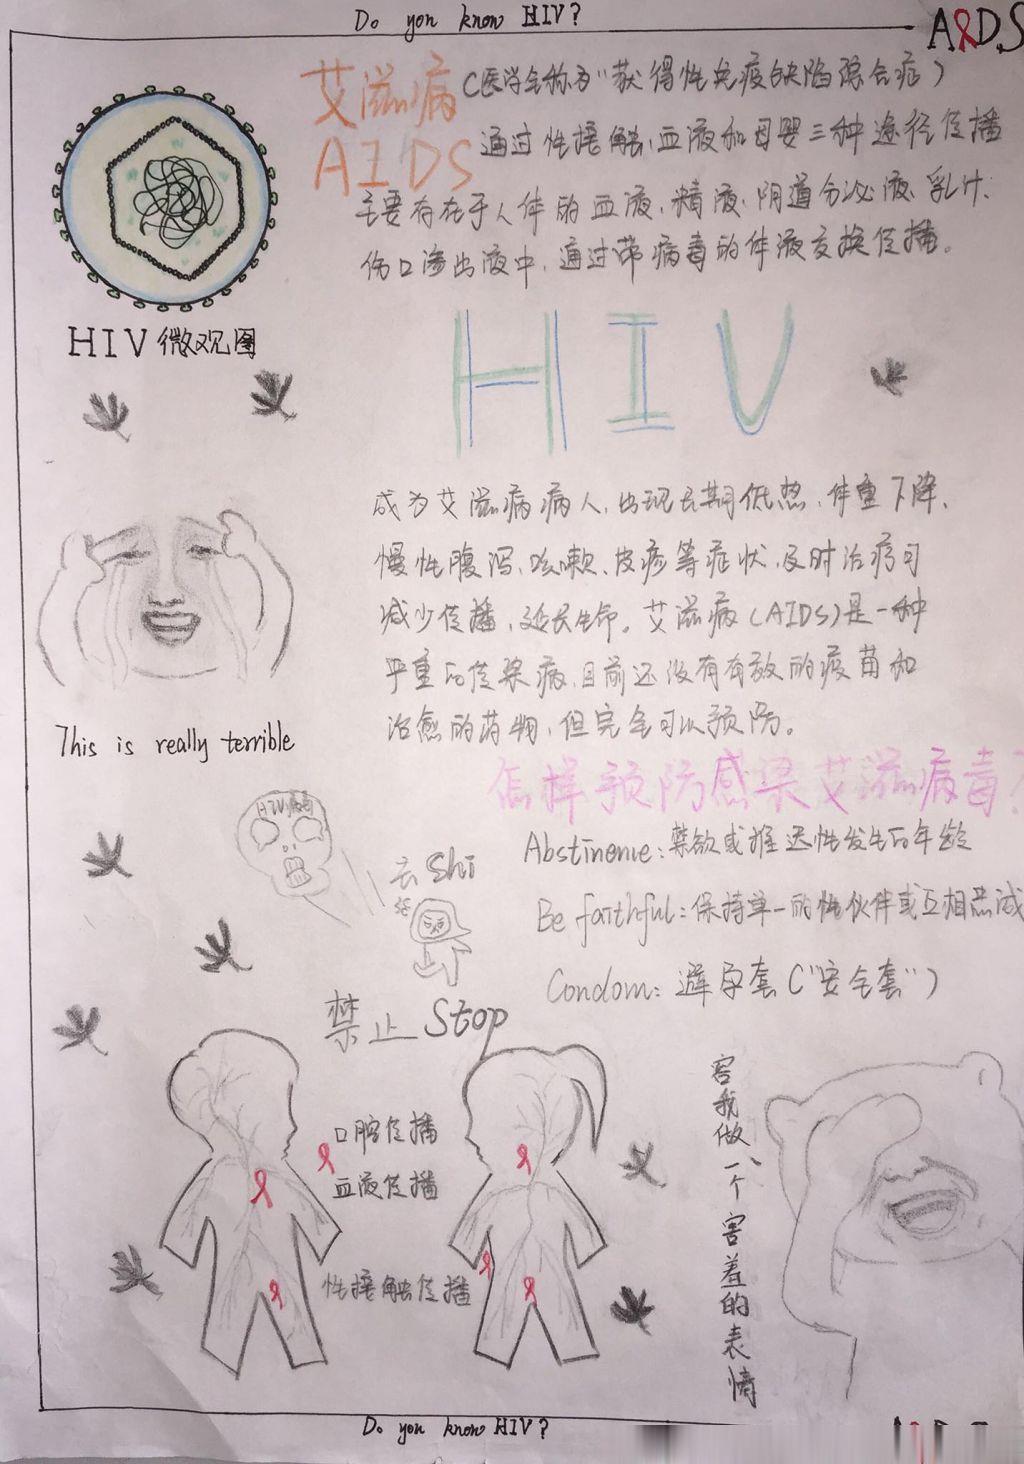 Do you know HIV?
AIDS
艾滋病
AIDS
(医学全称为"获得性免疫缺陷综合症)
通过性接触,血液和母婴三种途径传播
主要存在于人体的血液、精液、阴道分泌液、乳汁、
伤口渗出液中,通过带病毒的体液交换传播。
HIV微观图
HIV
成为艾滋病病人,出现长期低热、体重下降、
慢性腹泻、咳嗽、皮疹等症状,及时治疗可
减少传播,延长生命。艾滋病(AIDS)是一种
严重的传染病,目前还没有有效的疫苗和
治愈的药物,但完全可以预防。
This is really terrible
怎样预防感染艾滋病毒?
Abstinence:禁欲或推迟性发生的年龄
Be faithful:保持单一的性伙伴或互相忠诚
Condom:避孕套("安全套")
HIV病毒
去Shi
禁止Stop
口腔传播
血液传播
性接触传播
容我做一个害羞的表情
Do you know HIV?